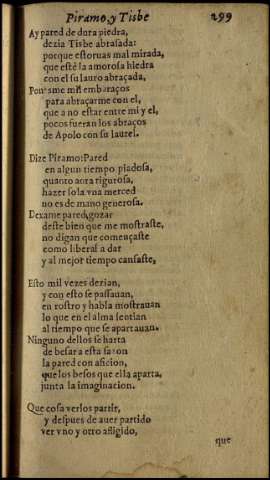 Piramo, y Tisbe 299
Ay pared de dura piedra,
dezia Tisbe abrasada:
porque estoruas mal mirada,
que estè la amorosa hiedra
con el su lauro abraçada,
Ponesme mil embaraços
para abraçarme con el,
que a no estar entre mi y el,
pocos fueran los abraços
de Apolo con su laurel.
Dize Piramo: Pared
en algun tiempo piadosa,
quanto aora rigurosa,
hazer sola vna merced
no es de mano generosa.
Dexame pared gozar
deste bien que me mostraste,
no digan que començaste
como liberal a dar
y al mejor tiempo cansaste,
Esto mil vezes dezian,
y con esto se passauan,
en rostro y habla mostrauan
lo que en el alma sentian
al tiempo que se apartauan.
Ninguno dellos se harta
de besar a esta sazon
la pared con aficion,
que los besos que ella aparta,
junta la imaginacion.
Que cosa verlos partir,
y despues de auer partido
ver vno y otro afligido,
que